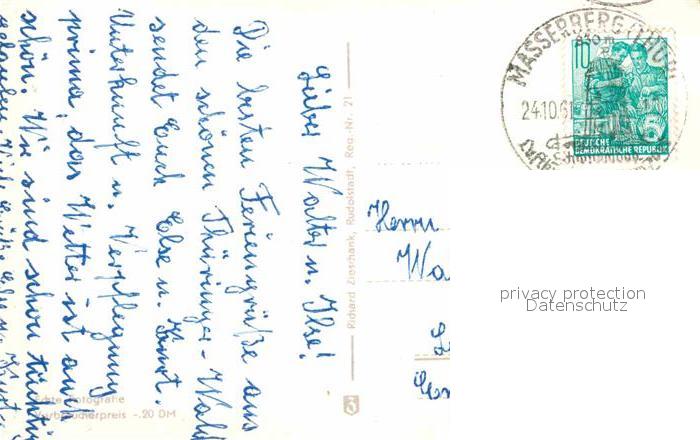 Lieber Walter u. Ilse!
Die besten Feriengrüße aus
dem schönen Thüringer-Wald
sendet Euch Else u. Kurt.
Unterkunft u. Verpflegung
prima, das Wetter ist auch
schön. Wir sind schon tüchtig
Richard Zieschank, Rudolstadt, Reg.-Nr. 21
Echte Fotografie
Verbraucherpreis -.20 DM
MASSERBERG (THÜR
24.10.61
10
5
DEUTSCHE
DEMOKRATISCHE REPUBLIK
Herrn
Wa
privacy protection
Datenschutz